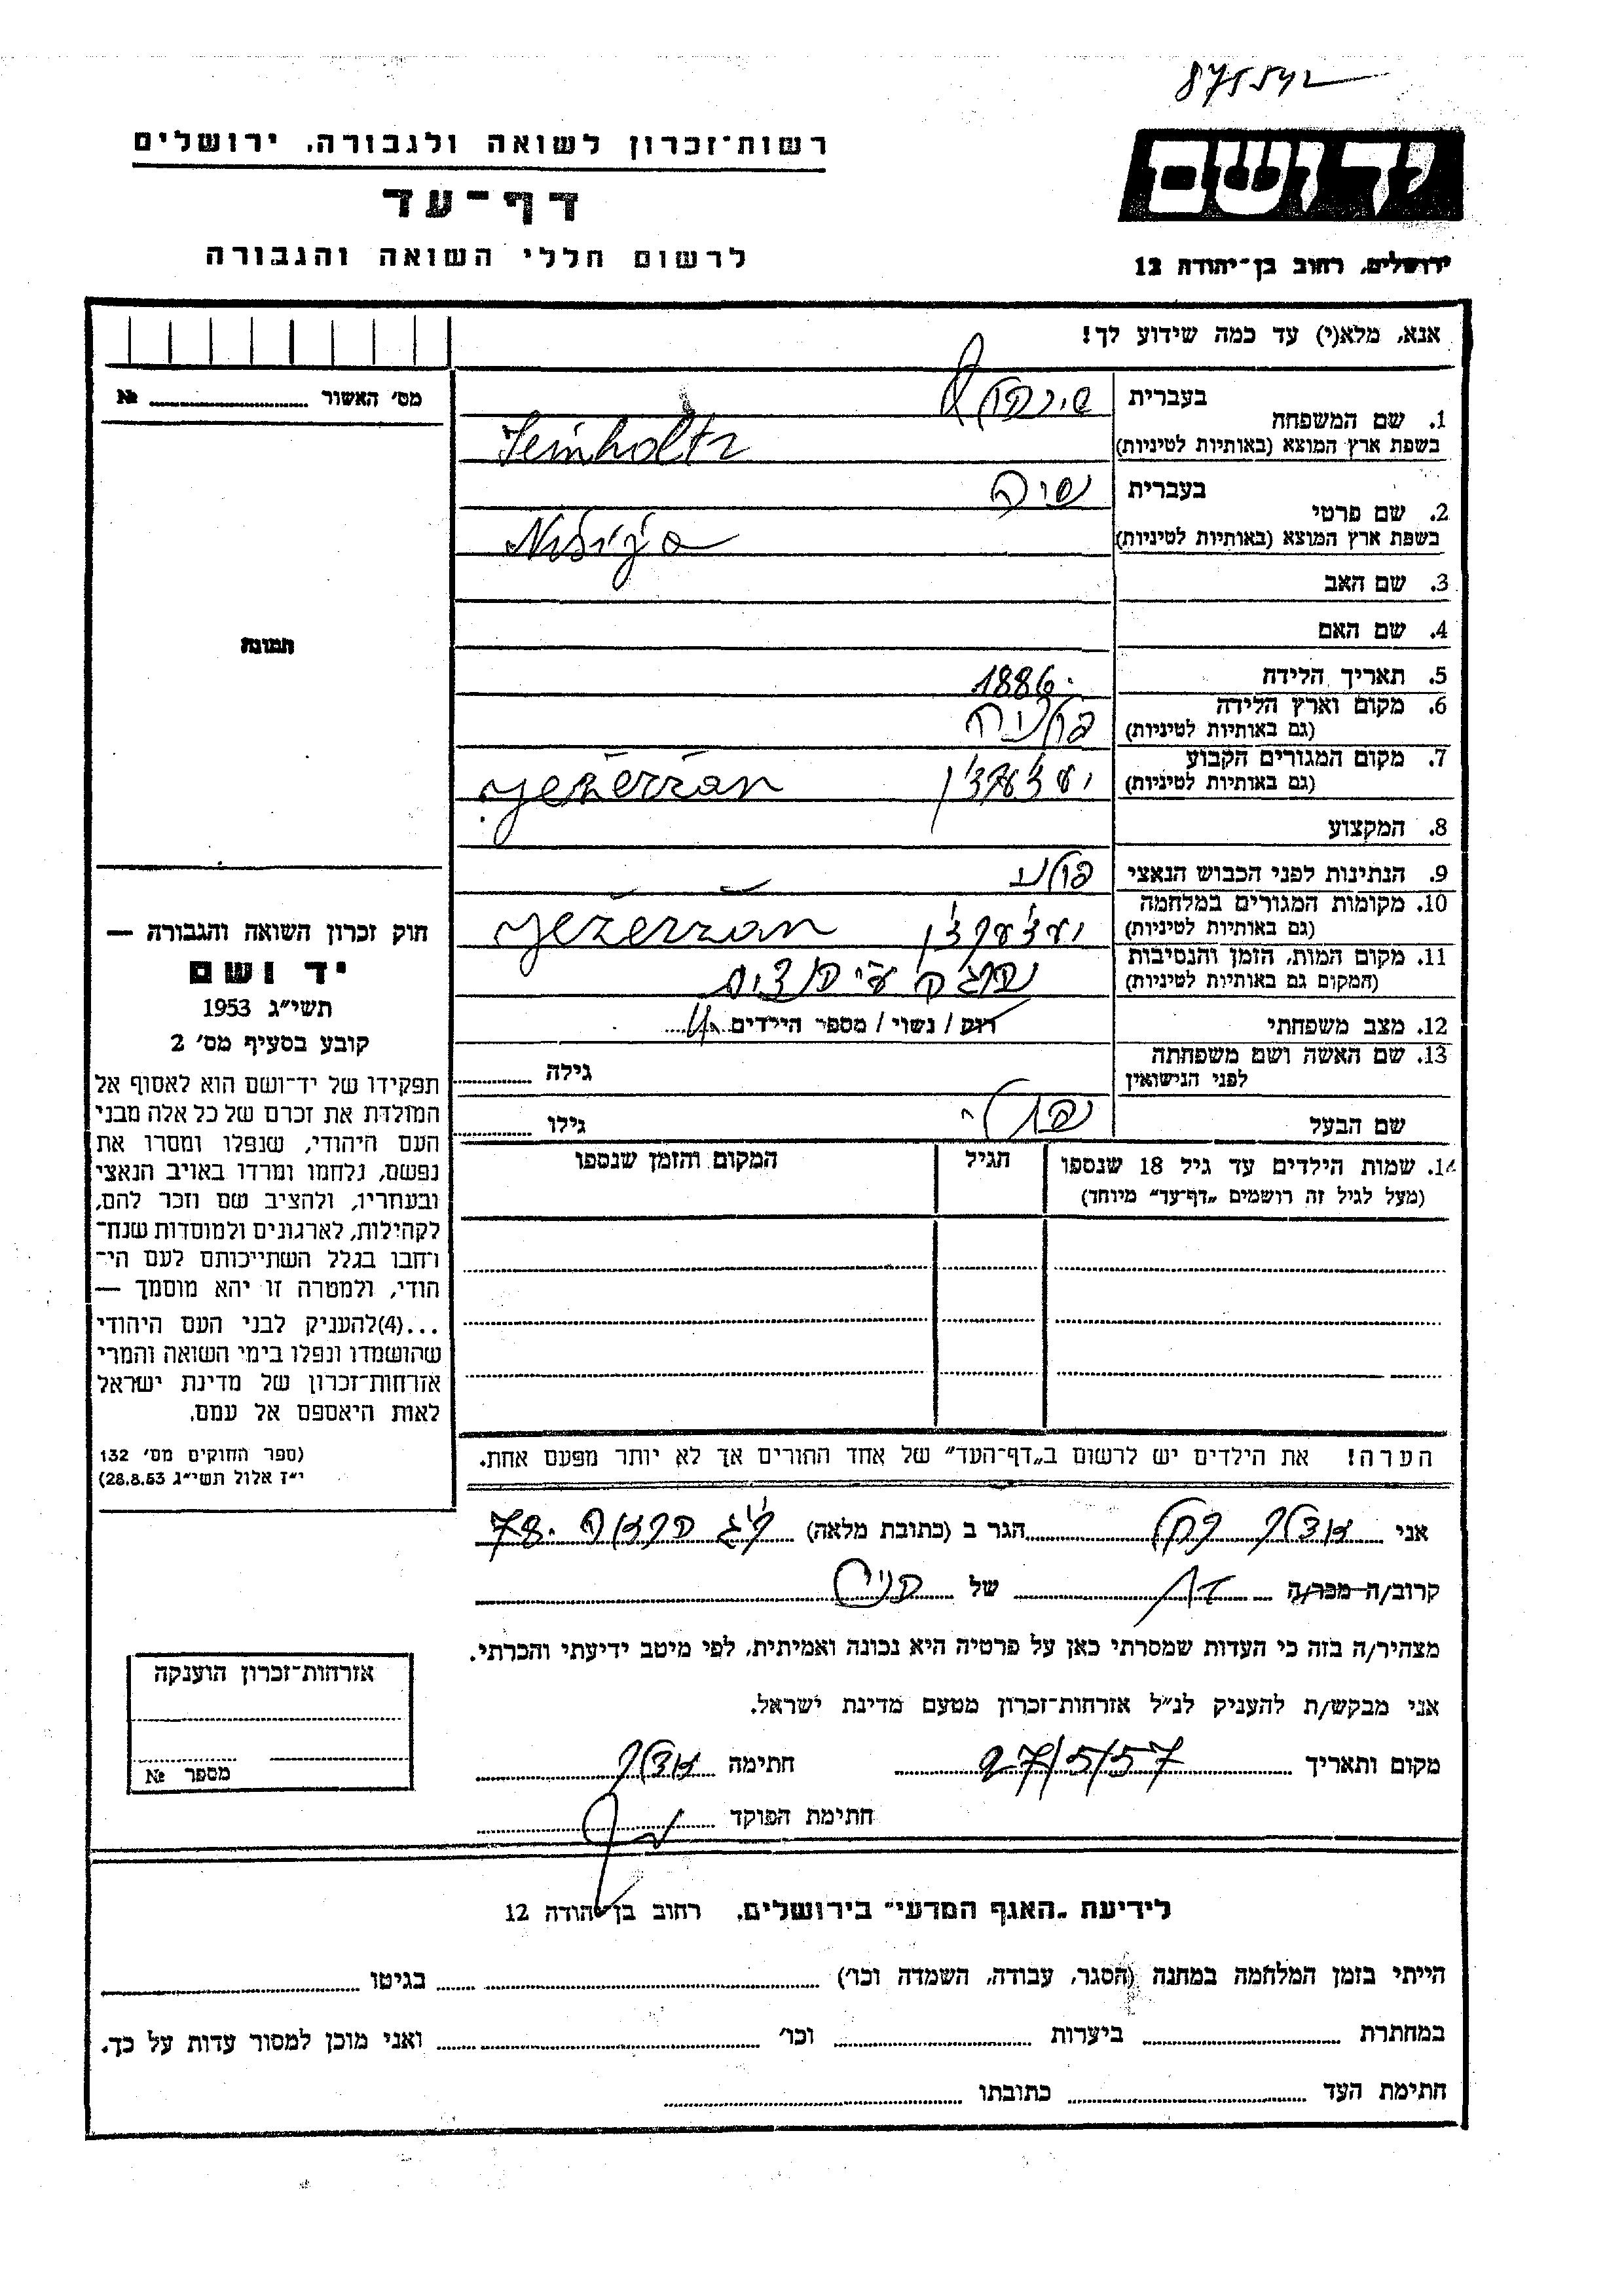 875542
רשות־זכרון לשואה ולגבורה, ירושלים
דף־עד
לרשום חללי השואה והגבורה
יד ושם
ירושלים, רחוב בן־יהודה 12
אנא, מלא(י) עד כמה שידוע לך!
מס׳ האשור № 
תמונה
1. שם המשפחה
בעברית
בשפת ארץ המוצא (באותיות לטיניות) Seinholtz
2. שם פרטי
בעברית
בשפת ארץ המוצא (באותיות לטיניות)
3. שם האב
4. שם האם
5. תאריך הלידה 1886
6. מקום וארץ הלידה
(גם באותיות לטיניות)
7. מקום המגורים הקבוע
(גם באותיות לטיניות) Yežeržan
8. המקצוע
9. הנתינות לפני הכבוש הנאצי
10. מקומות המגורים במלחמה
(גם באותיות לטיניות) Yežeržan
11. מקום המות, הזמן והנסיבות
(המקום גם באותיות לטיניות)
12. מצב משפחתי רוק / נשוי / מספר הילדים 4
13. שם האשה ושם משפחתה גילה
לפני הנישואין
שם הבעל גילו
14. שמות הילדים עד גיל 18 שנספו הגיל המקום והזמן שנספו
(מעל לגיל זה רושמים „דף־עד״ מיוחד)
הערה! את הילדים יש לרשום ב„דף־העד״ של אחד ההורים אך לא יותר מפעם אחת.
חוק זכרון השואה והגבורה —
יד ושם
תשי״ג 1953
קובע בסעיף מס׳ 2
תפקידו של יד־ושם הוא לאסוף אל
המולדת את זכרם של כל אלה מבני
העם היהודי, שנפלו ומסרו את
נפשם, נלחמו ומרדו באויב הנאצי
ובעוזריו, ולהציב שם וזכר להם,
לקהילות, לארגונים ולמוסדות שנח־
רבו בגלל השתייכותם לעם הי־
הודי, ולמטרה זו יהא מוסמך —
...(4)להעניק לבני העם היהודי
שהושמדו ונפלו בימי השואה והמרי
אזרחות־זכרון של מדינת ישראל
לאות היאספם אל עמם.
(ספר החוקים מס׳ 132
י״ז אלול תשי״ג 28.8.53)
אני הגר ב (כתובת מלאה) 78
קרוב/ה מכר/ה של
מצהיר/ה בזה כי העדות שמסרתי כאן על פרטיה היא נכונה ואמיתית, לפי מיטב ידיעתי והכרתי.
אני מבקש/ת להעניק לנ״ל אזרחות־זכרון מטעם מדינת ישראל.
מקום ותאריך 27/5/57 חתימה
חתימת הפוקד
אזרחות־זכרון הוענקה
מספר №
לידיעת „האגף המדעי״ בירושלים, רחוב בן־יהודה 12
הייתי בזמן המלחמה במחנה (הסגר, עבודה, השמדה וכו׳) בגיטו
במחתרת ביערות וכו׳ ואני מוכן למסור עדות על כך.
חתימת העד כתובתו